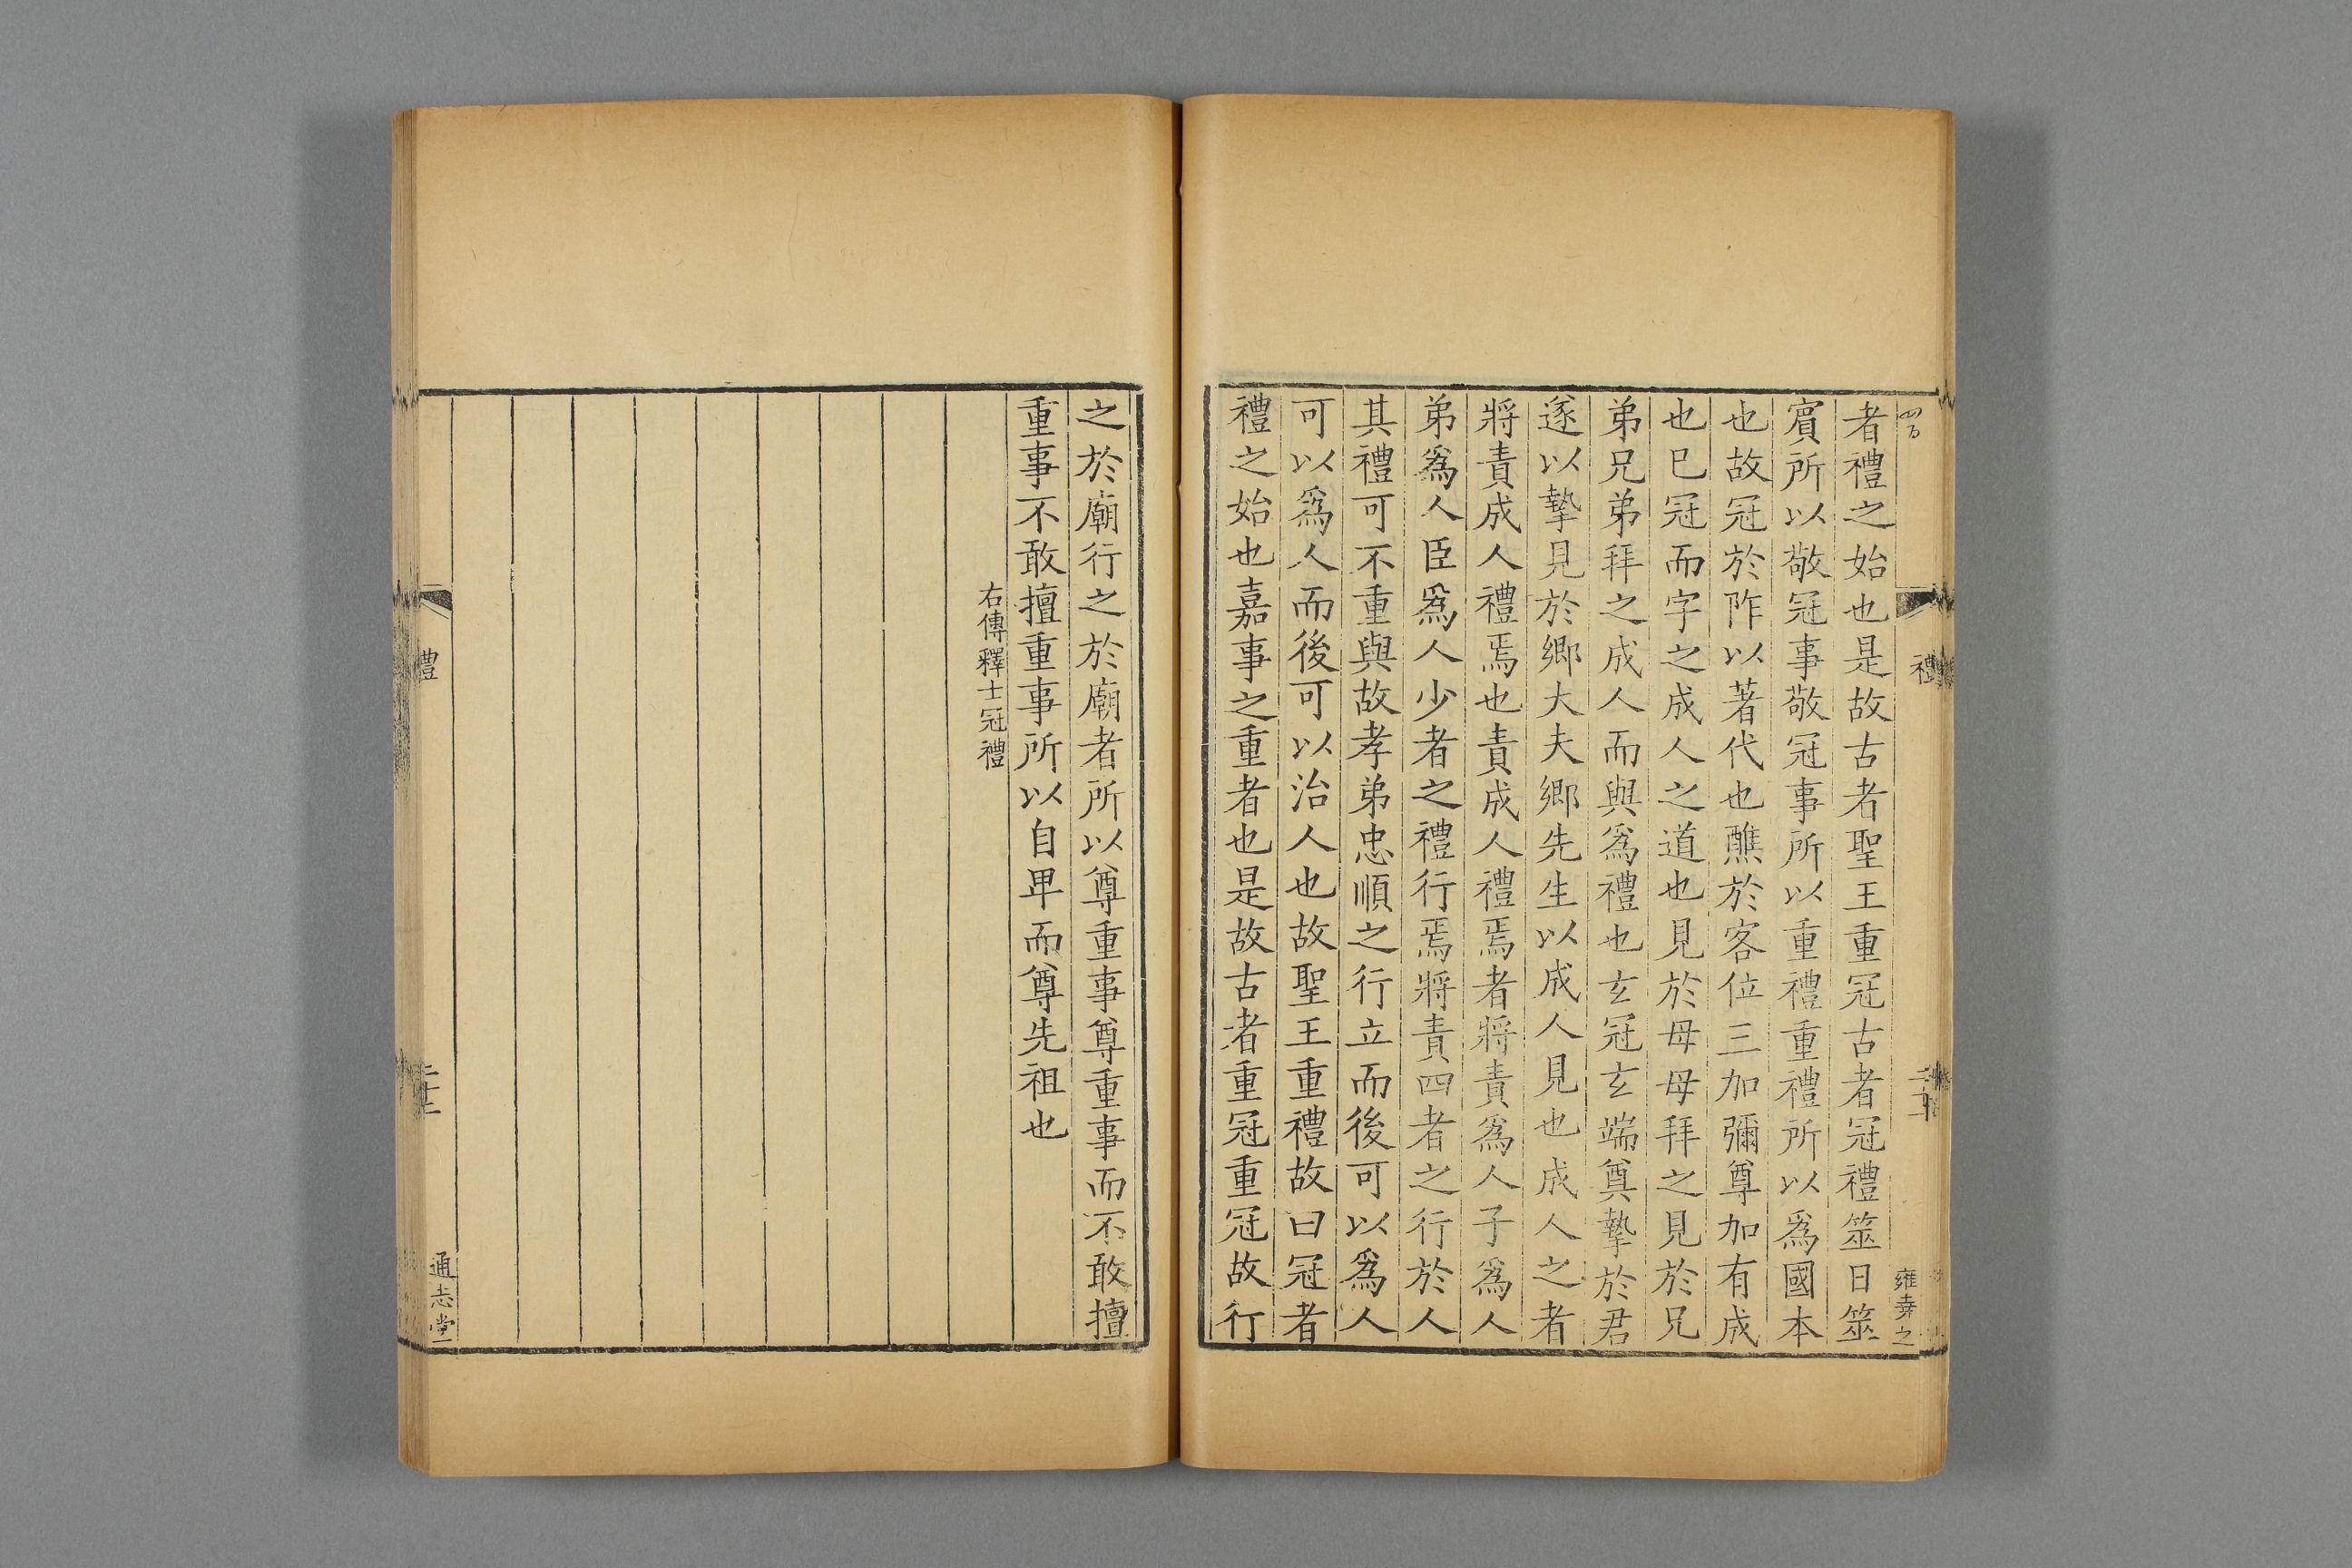 者禮之始也是故古者聖王重冠古者冠禮筮日筮
賓所以敬冠事敬冠事所以重禮重禮所以爲國本
也故冠於阼以著代也醮於客位三加彌尊加有成
也已冠而字之成人之道也見於母母拜之見於兄
弟兄弟拜之成人而與爲禮也玄冠玄端奠摯於君
遂以摯見於鄉大夫鄉先生以成人見也成人之者
將責成人禮焉也責成人禮焉者將責爲人子爲人
弟爲人臣爲人少者之禮行焉將責四者之行於人
其禮可不重與故孝弟忠順之行立而後可以爲人
可以爲人而後可以治人也故聖王重禮故曰冠者
禮之始也嘉事之重者也是故古者重冠重冠故行
之於廟行之於廟者所以尊重事尊重事而不敢擅
重事不敢擅重事所以自卑而尊先祖也
右傳釋士冠禮
禮
通志堂